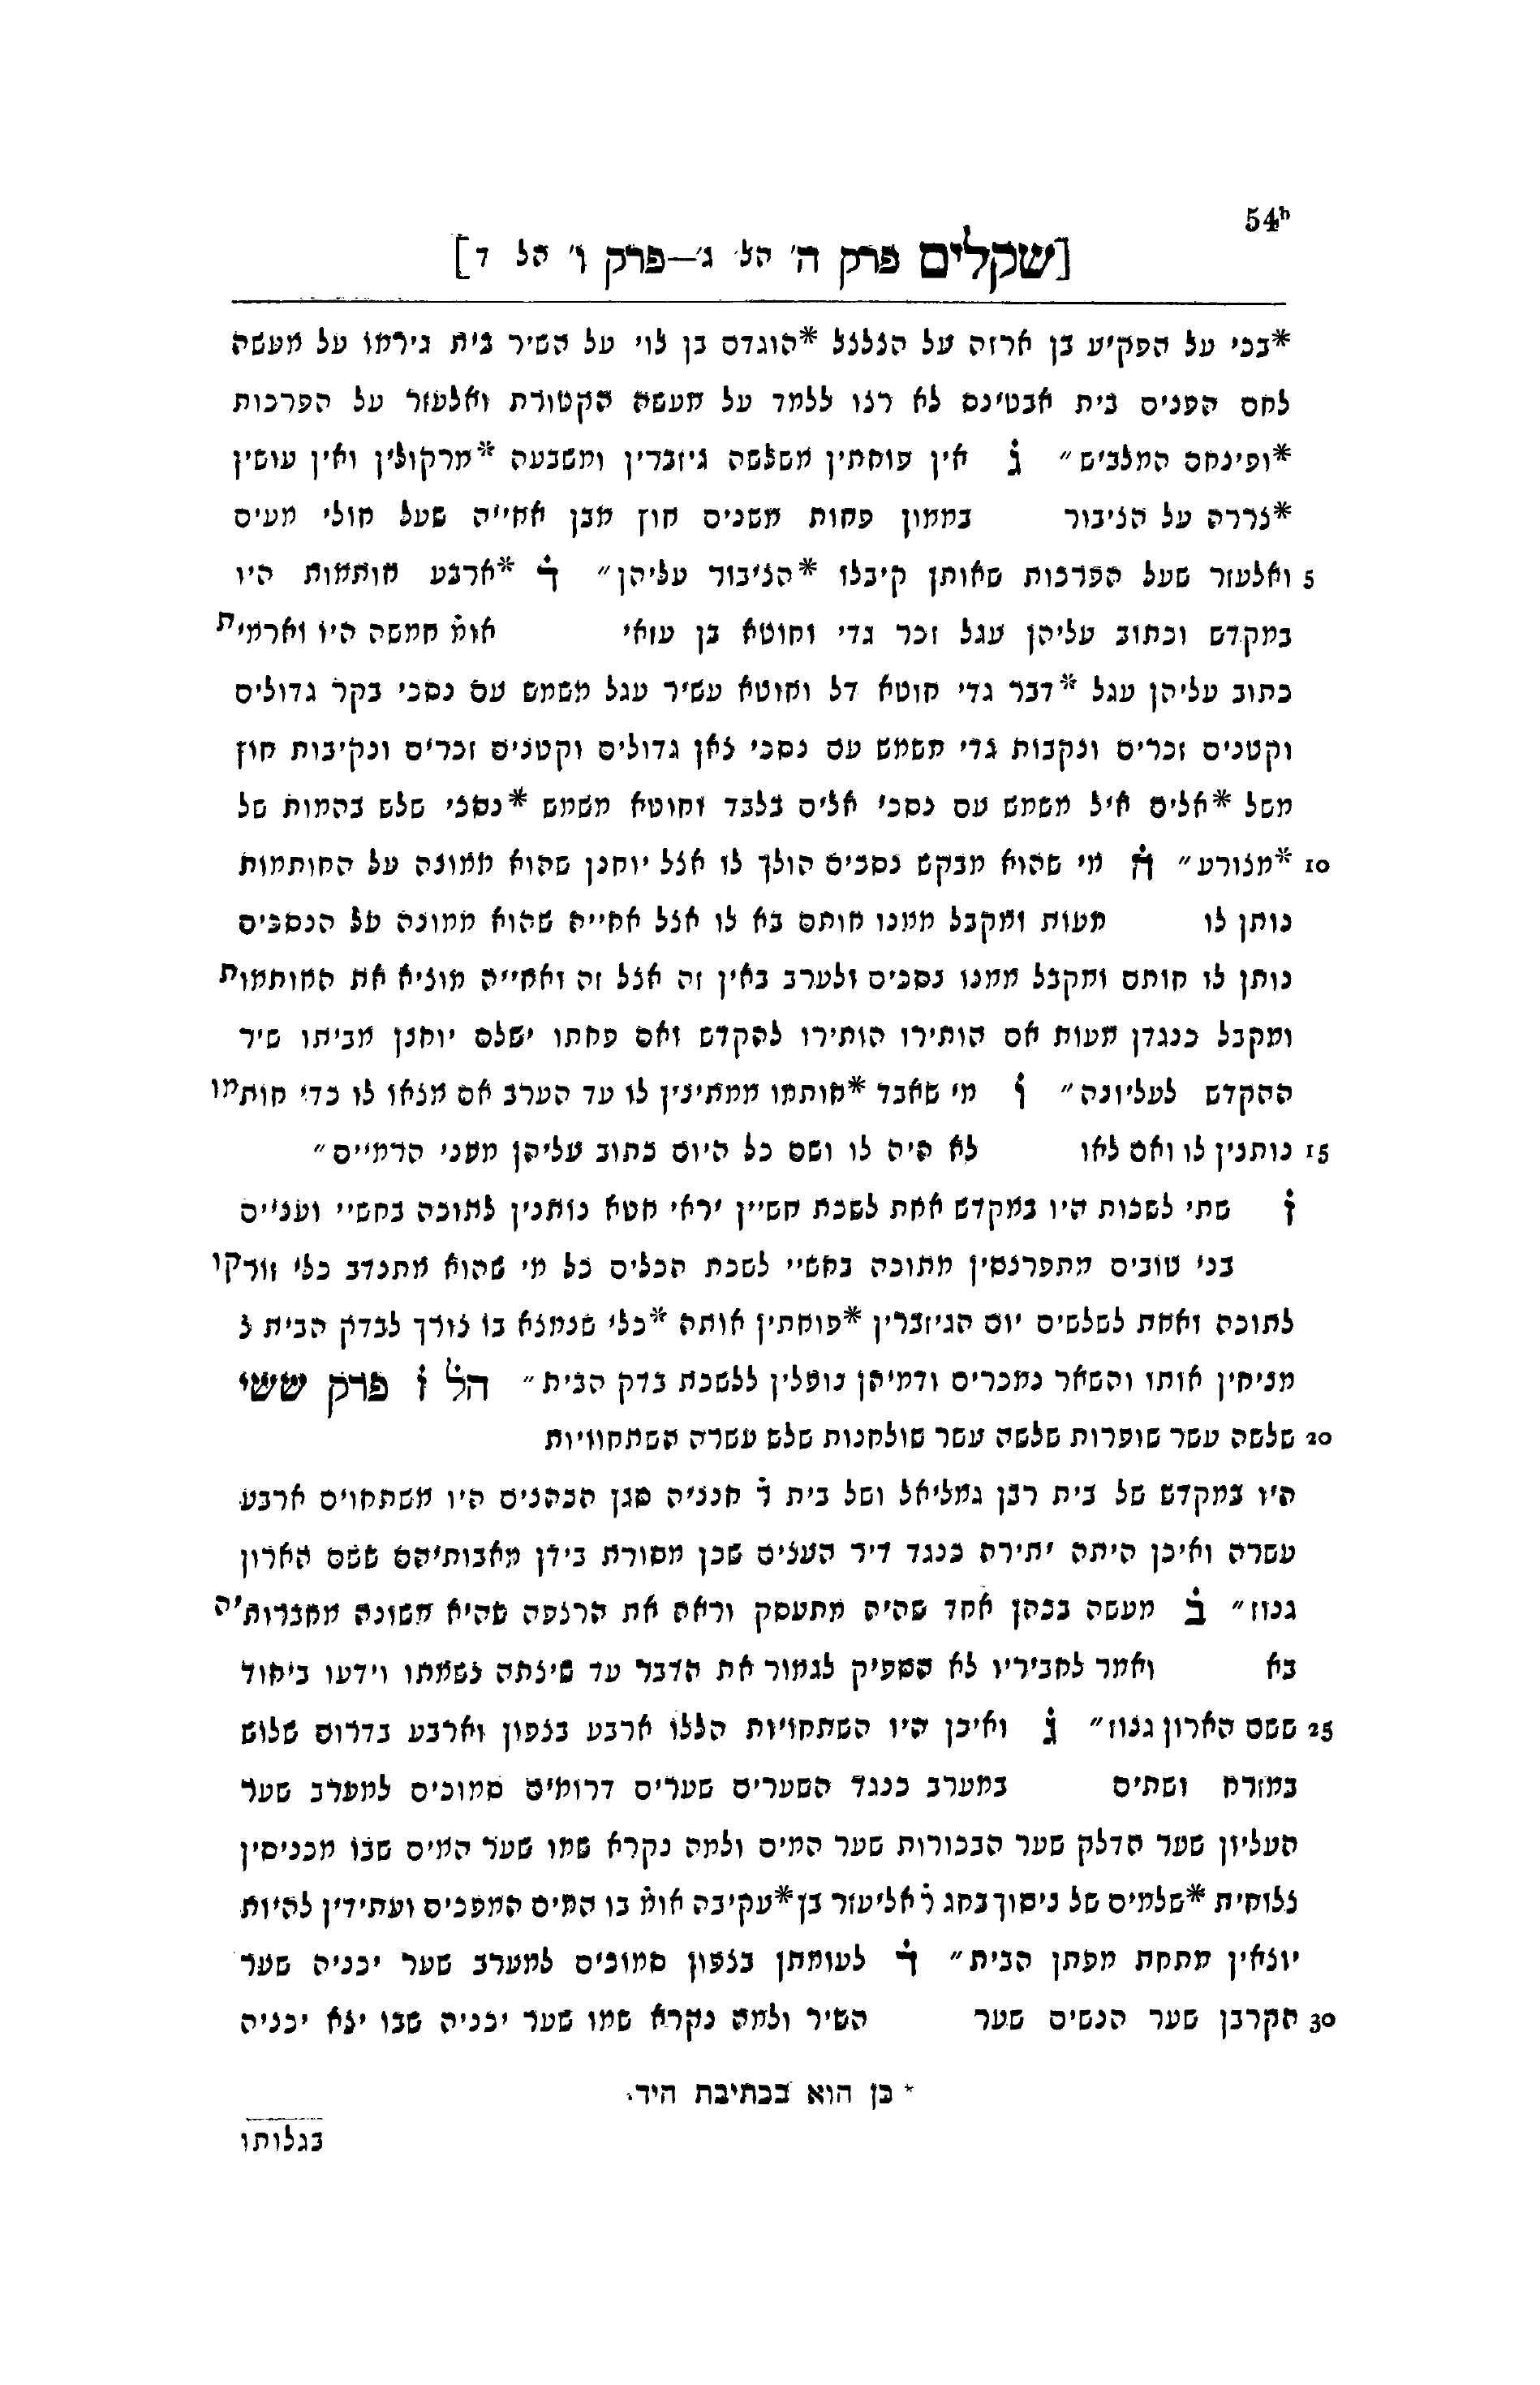 54ᵇ
[שקלים פרק ה' הל' ג'—פרק ו' הל ד]
*בכי על הפקיע בן ארזה על הצלצל *הוגדס בן לוי על השיר בית גירמו על מעשה
לחם הפנים בית אבטינס לא רצו ללמד על מעשה הקטורת ואלעזר על הפרכות
*ופינחס המלביש״ ג אין פוחתין משלשה גיזברין ומשבעה *מרקולין ואין עושין
*צררה על הציבור בממון פחות משנים חוץ מבן אחייה שעל חולי מעים
5 ואלעזר שעל הפרכות שאותן קיבלו *הציבור עליהן״ ד *ארבע חותמות היו
במקדש וכתוב עליהן עגל זכר גדי וחוטא בן עזאי אומ חמשה היו וארמית
כתוב עליהן עגל *דבר גדי חוטא דל וחוטא עשיר עגל משמש עם נסכי בקר גדולים
וקטנים זכרים ונקבות גדי משמש עם נסכי צאן גדולים וקטנים זכרים ונקיבות חוץ
משל *אלים איל משמש עם נסכי אלים בלבד וחוטא משמש *נסכי שלש בהמות של
10 *מצורע״ ה מי שהוא מבקש נסכים הולך לו אצל יוחנן שהוא ממונה על החותמות
נותן לו מעות ומקבל ממנו חותם בא לו אצל אחייה שהוא ממונה על הנסכים
נותן לו חותם ומקבל ממנו נסכים ולערב באין זה אצל זה ואחייה מוציא את החותמות
ומקבל כנגדן מעות אם הותירו הותירו להקדש ואם פחתו ישלם יוחנן מביתו שיד
ההקדש לעליונה״ ו מי שאבד *חותמו ממתינין לו עד הערב אם מצאו לו כדי חותמו
15 נותנין לו ואם לאו לא היה לו ושם כל היום כתוב עליהן מפני הרמיים״
ז שתי לשכות היו במקדש אחת לשכת חשיין יראי חטא נותנין לתוכה בחשיי ועניים
בני טובים מתפרנסין מתוכה בחשיי לשכת הכלים כל מי שהוא מתנדב כלי זורקו
לתוכה ואחת לשלשים יום הגיזברין *פוחתין אותה *כלי שנמצא בו צורך לבדק הבית צ
מניחין אותו והשאר נמכרים ודמיהן נופלין ללשכת בדק הבית״ הל ז פרק ששי
20 שלשה עשר שופרות שלשה עשר שולחנות שלש עשרה השתחוויות
היו במקדש של בית רבן גמליאל ושל בית ר חנניה סגן הכהנים היו משתחוים ארבע
עשרה ואיכן היתה יתירה כנגד דיר העצים שכן מסורת בידן מאבותיהם ששם הארון
גנוז״ ב מעשה בכהן אחד שהיה מתעסק וראה את הרצפה שהיא משונה מחברותיה
בא ואמר לחביריו לא הספיק לגמור את הדבר עד שיצתה נשמתו וידעו ביחוד
25 ששם הארון גנוז״ ג ואיכן היו השתחויות הללו ארבע בצפון וארבע בדרום שלוש
במזרח ושתים במערב כנגד השערים שערים דרומים סמוכים למערב שער
העליון שער הדלק שער הבכורות שער המים ולמה נקרא שמו שער המים שבו מכניסין
צלוחית *שלמים של ניסוך בחג ר אליעזר בן *עקיבה אומ בו המים המפכים ועתידין להיות
יוצאין מתחת מפתן הבית״ ד לעומתן בצפון סמוכים למערב שער יכניה שער
30 הקרבן שער הנשים שער השיר ולמה נקרא שמו שער יכניה שבו יצא יכניה
* כן הוא בכתיבת היד.
בגלותו